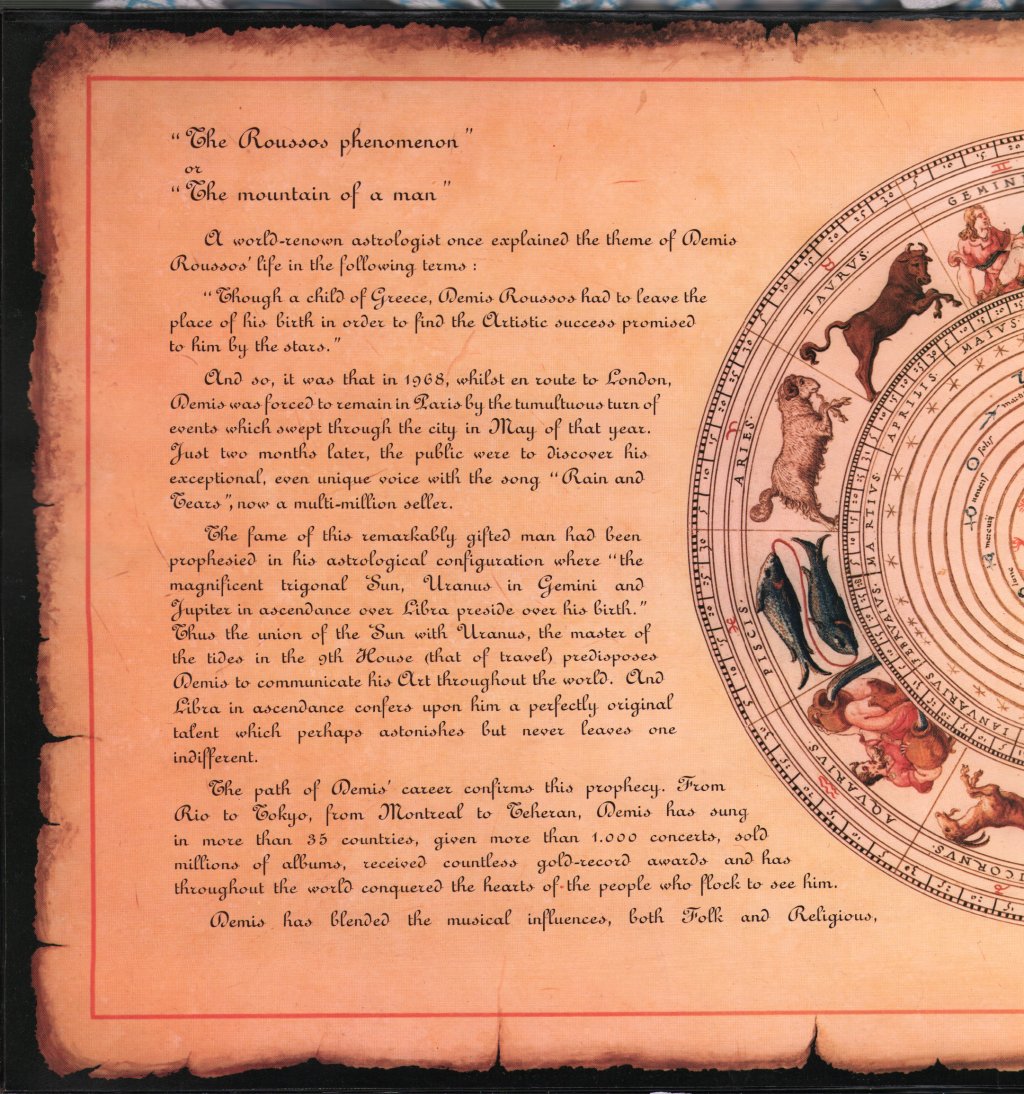 “The Roussos phenomenon”
or
“The mountain of a man”
A world-renown astrologist once explained the theme of Demis
Roussos' life in the following terms :
“Though a child of Greece, Demis Roussos had to leave the
place of his birth in order to find the Artistic success promised
to him by the stars.”
And so, it was that in 1968, whilst en route to London,
Demis was forced to remain in Paris by the tumultuous turn of
events which swept through the city in May of that year.
Just two months later, the public were to discover his
exceptional, even unique voice with the song “Rain and
Tears”, now a multi-million seller.
The fame of this remarkably gifted man had been
prophesied in his astrological configuration where “the
magnificent trigonal Sun, Uranus in Gemini and
Jupiter in ascendance over Libra preside over his birth.”
Thus the union of the Sun with Uranus, the master of
the tides in the 9th House (that of travel) predisposes
Demis to communicate his Art throughout the world. And
Libra in ascendance confers upon him a perfectly original
talent which perhaps astonishes but never leaves one
indifferent.
The path of Demis' career confirms this prophecy. From
Rio to Tokyo, from Montreal to Teheran, Demis has sung
in more than 35 countries, given more than 1.000 concerts, sold
millions of albums, received countless gold-record awards and has
throughout the world conquered the hearts of the people who flock to see him.
Demis has blended the musical influences, both Folk and Religious,
GEMINI
TAVRVS.
ARIES.
PISCIS.
AQVARIVS.
ICORNVS.
MAIVS.
APRILIS.
MARTIVS.
FEBRVAIVS.
IANVARIVS